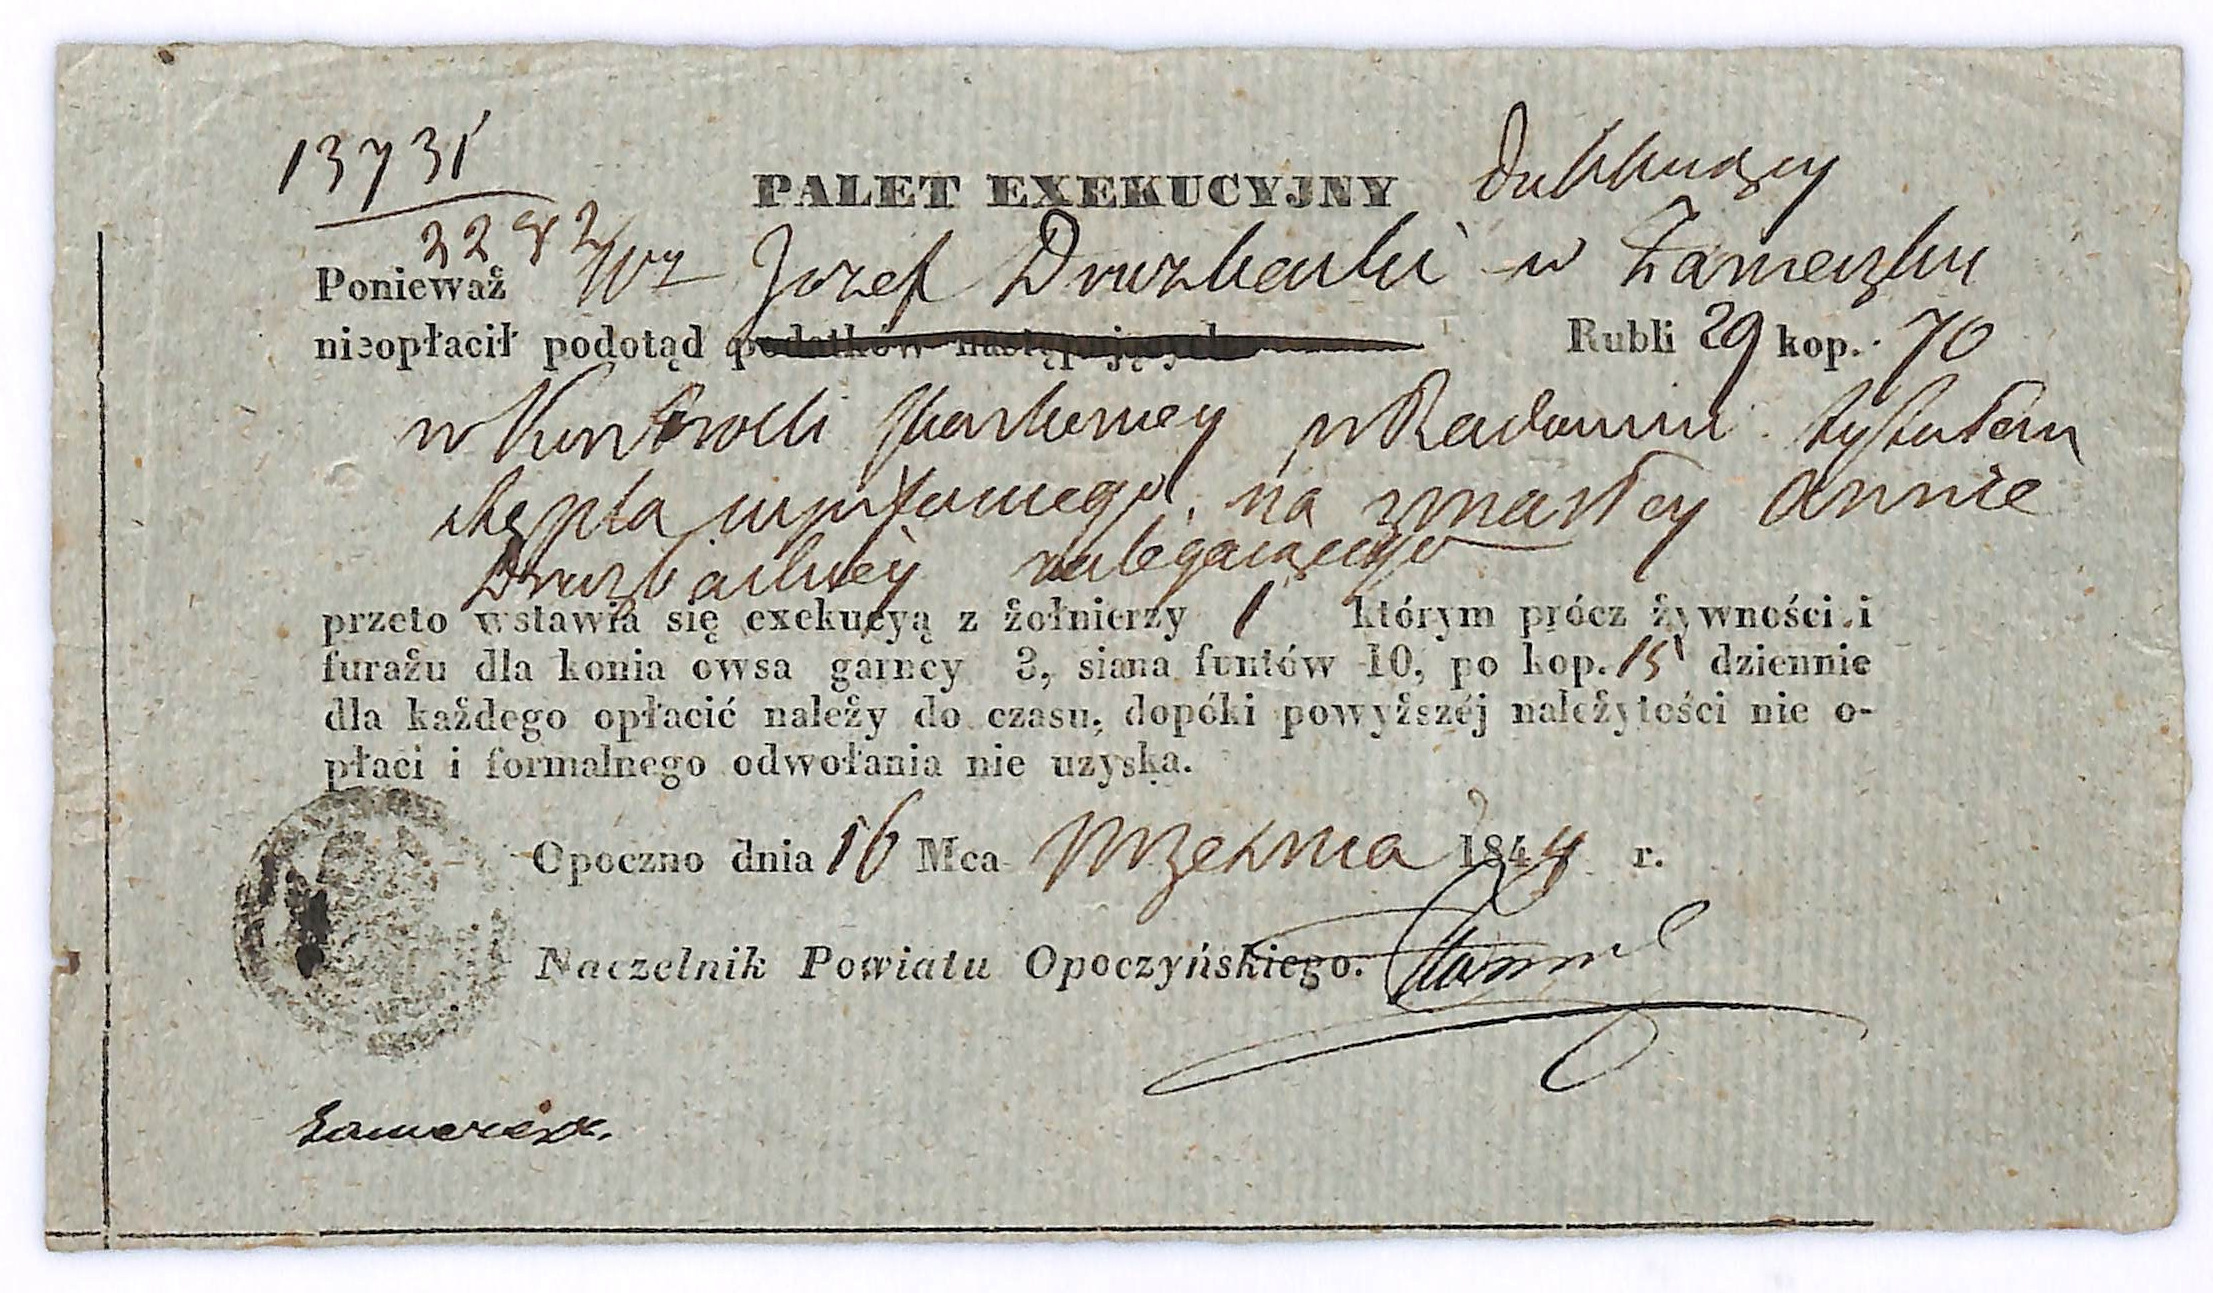 13731
PALET EXEKUCYJNY
Ponieważ Wż Jozef Druzbacki w Zameczku
nieopłacił podotąd podatków następujących Rubli 29 kop. 70
w Kontrolli Skarbowey w Radomiu tytułem
stępla na zmarłey Annie
Druzbackiey zalegaiącego
przeto wstawia się exekucyą z żołnierzy 1 którym prócz żywności i
furażu dla konia owsa garncy 3, siana funtów 10, po kop. 15 dziennie
dla każdego opłacić należy do czasu, dopóki powyższéj należytości nie o-
płaci i formalnego odwołania nie uzyska.
Opoczno dnia 16 Mca Września 1844 r.
Naczelnik Powiatu Opoczyńskiego.